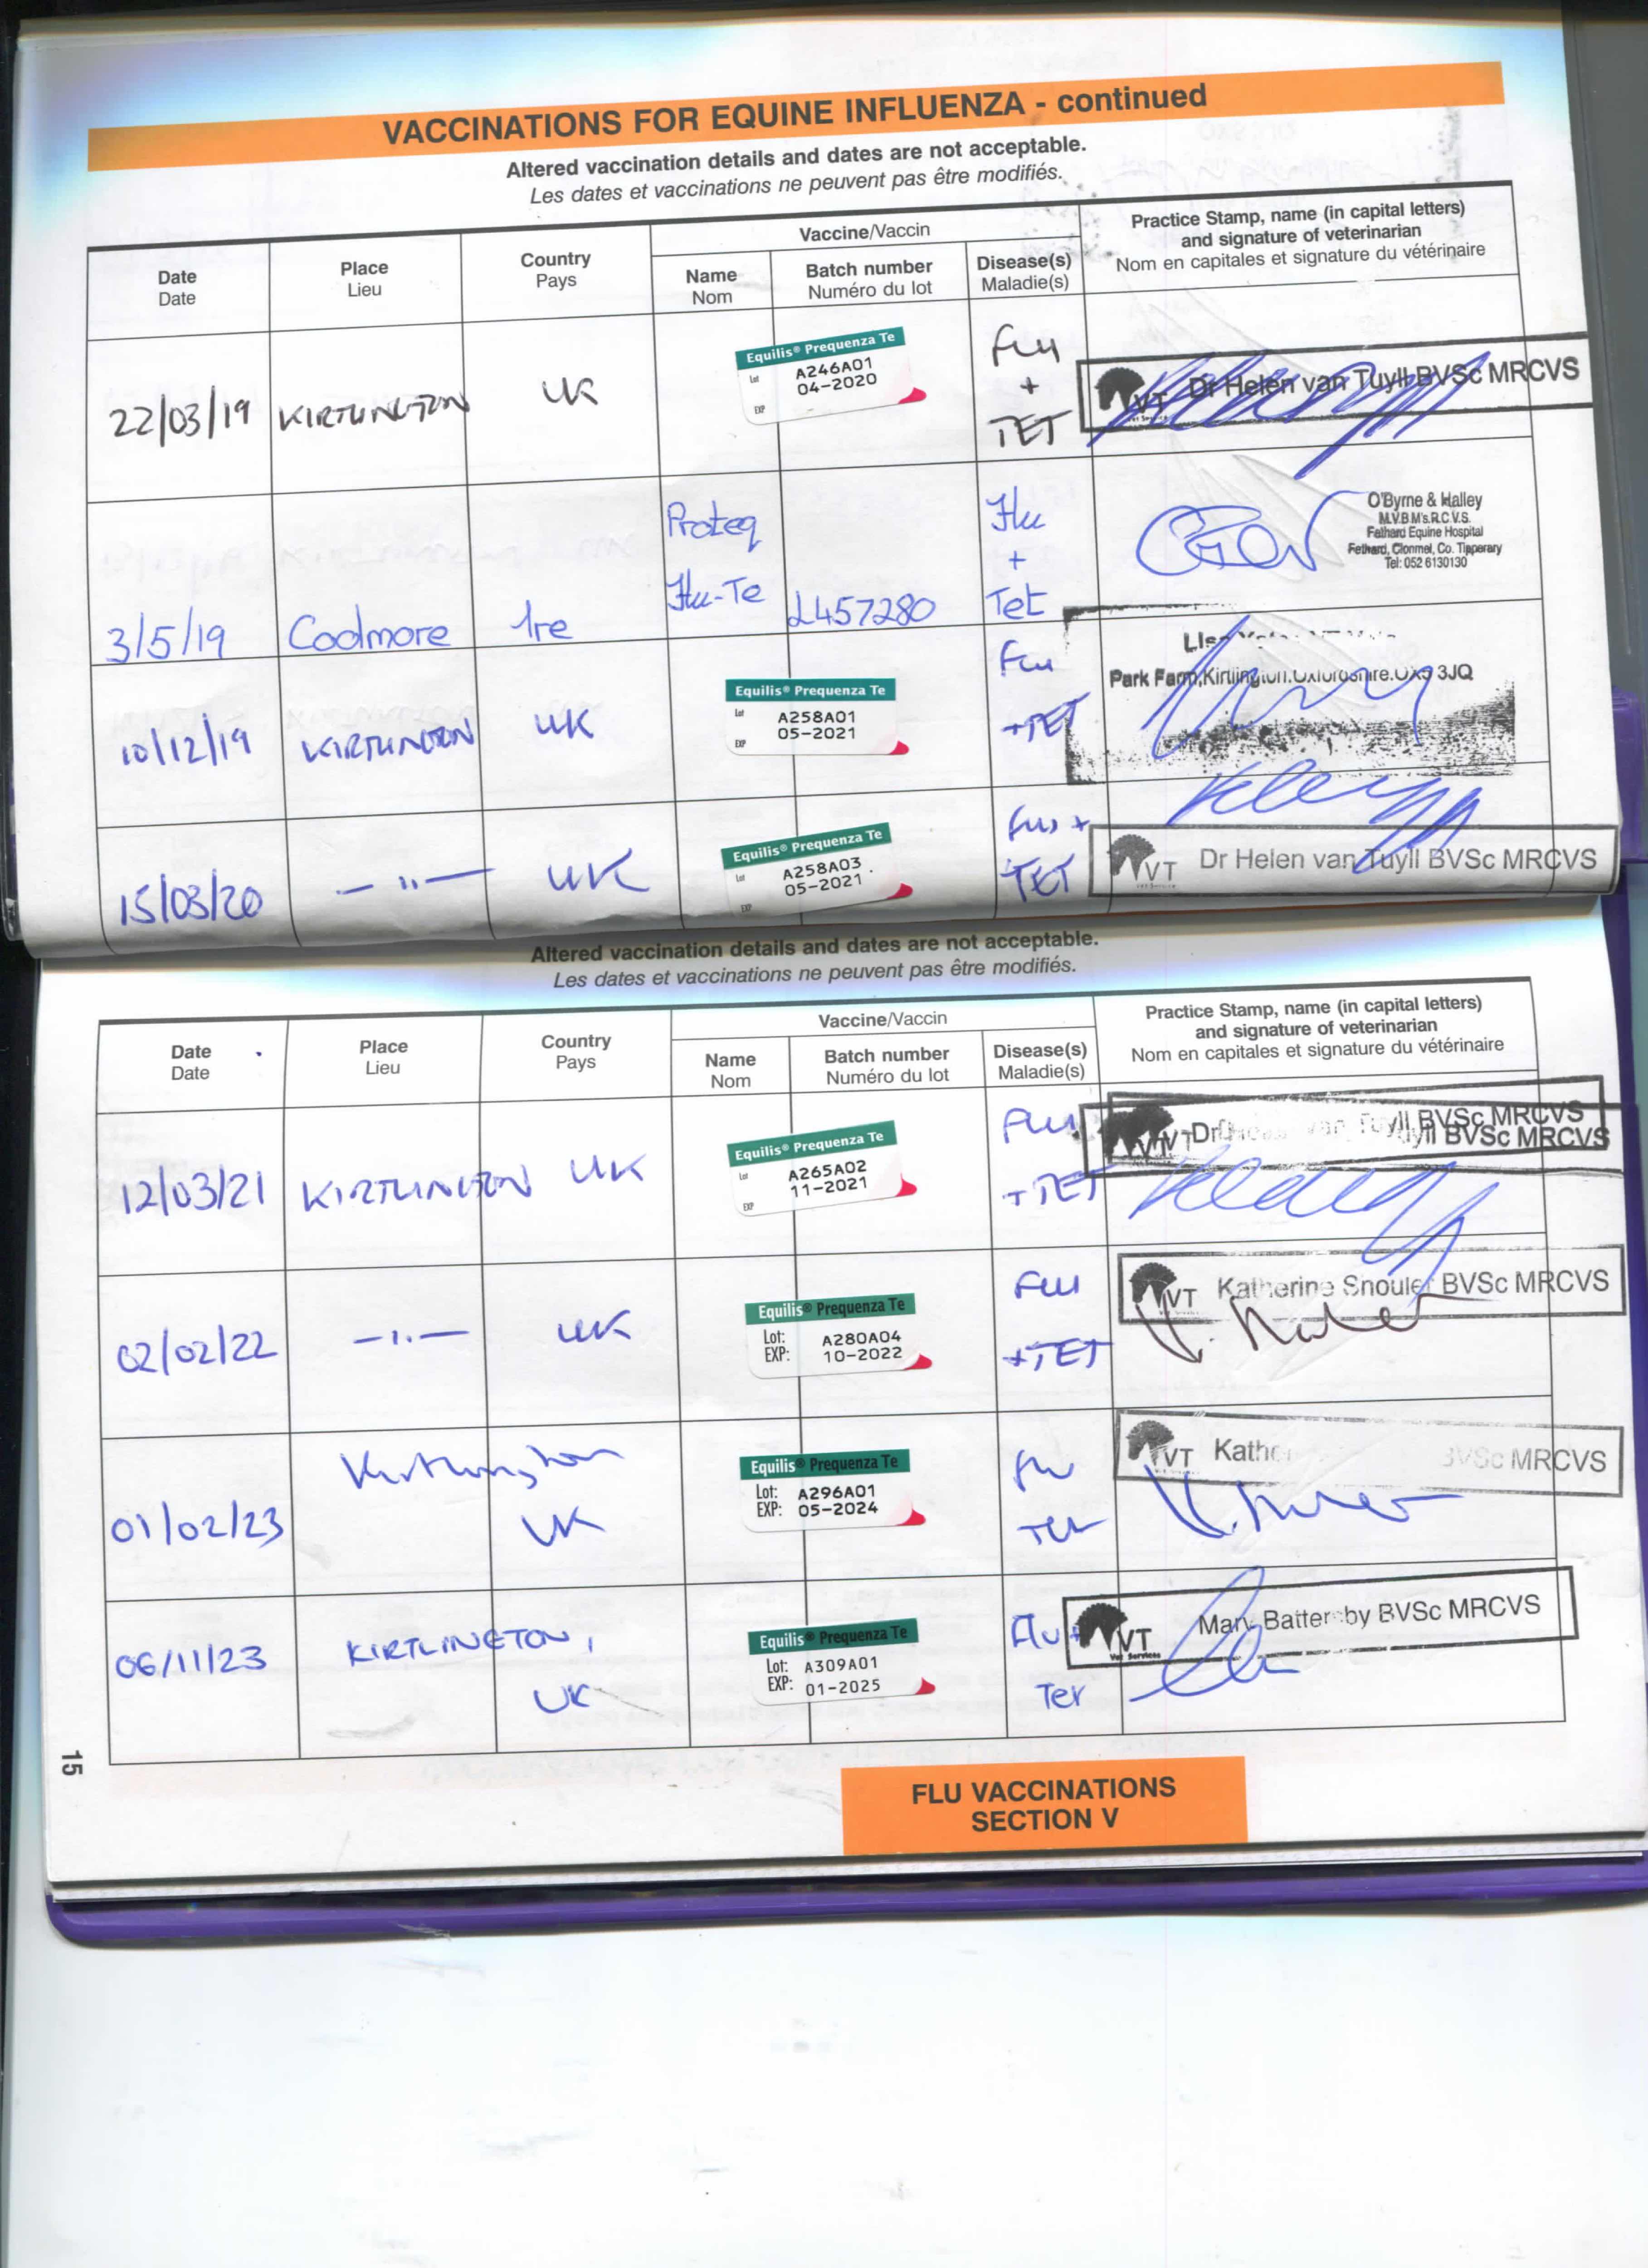 VACCINATIONS FOR EQUINE INFLUENZA - continued
Altered vaccination details and dates are not acceptable.
Les dates et vaccinations ne peuvent pas être modifiés.
Date
Date
Place
Lieu
Country
Pays
Vaccine/Vaccin
Name
Nom
Batch number
Numéro du lot
Disease(s)
Maladie(s)
Practice Stamp, name (in capital letters)
and signature of veterinarian
Nom en capitales et signature du vétérinaire
22/03/19 KIRTLINGTON UK
Equilis® Prequenza Te
Lot A246A01
04-2020
EXP
Flu
+
TET
VT Dr Helen van Tuyll BVSc MRCVS
3/5/19 Coolmore Ire
Proteq
Flu-Te
L457280
Flu
+
Tet
O'Byrne & Halley
M.V.B.M's.R.C.V.S.
Fethard Equine Hospital
Fethard, Clonmel, Co. Tipperary
Tel: 052 6130130
10/12/19 KIRTLINGTON UK
Equilis® Prequenza Te
Lot A258A01
05-2021
EXP
Flu
+TET
Park Farm, Kirtlington. Oxfordshire. OX5 3JQ
15/03/20 —"— UK
Equilis® Prequenza Te
Lot A258A03
05-2021
EXP
Flu +
TET
VT Dr Helen van Tuyll BVSc MRCVS
Altered vaccination details and dates are not acceptable.
Les dates et vaccinations ne peuvent pas être modifiés.
Date
Date
Place
Lieu
Country
Pays
Vaccine/Vaccin
Name
Nom
Batch number
Numéro du lot
Disease(s)
Maladie(s)
Practice Stamp, name (in capital letters)
and signature of veterinarian
Nom en capitales et signature du vétérinaire
12/03/21 KIRTLINGTON UK
Equilis® Prequenza Te
Lot A265A02
11-2021
EXP
Flu
+TET
VT Dr van Tuyll BVSc MRCVS
02/02/22 —"— UK
Equilis® Prequenza Te
Lot: A280A04
EXP: 10-2022
Flu
+TET
VT Katherine BVSc MRCVS
01/02/23 Kirtlington
UK
Equilis® Prequenza Te
Lot: A296A01
EXP: 05-2024
Flu
Tet
VT Kathe BVSc MRCVS
06/11/23 KIRTLINGTON,
UK
Equilis® Prequenza Te
Lot: A309A01
EXP: 01-2025
Flu +
Tet
VT Mary Battersby BVSc MRCVS
Vet Services
15
FLU VACCINATIONS
SECTION V